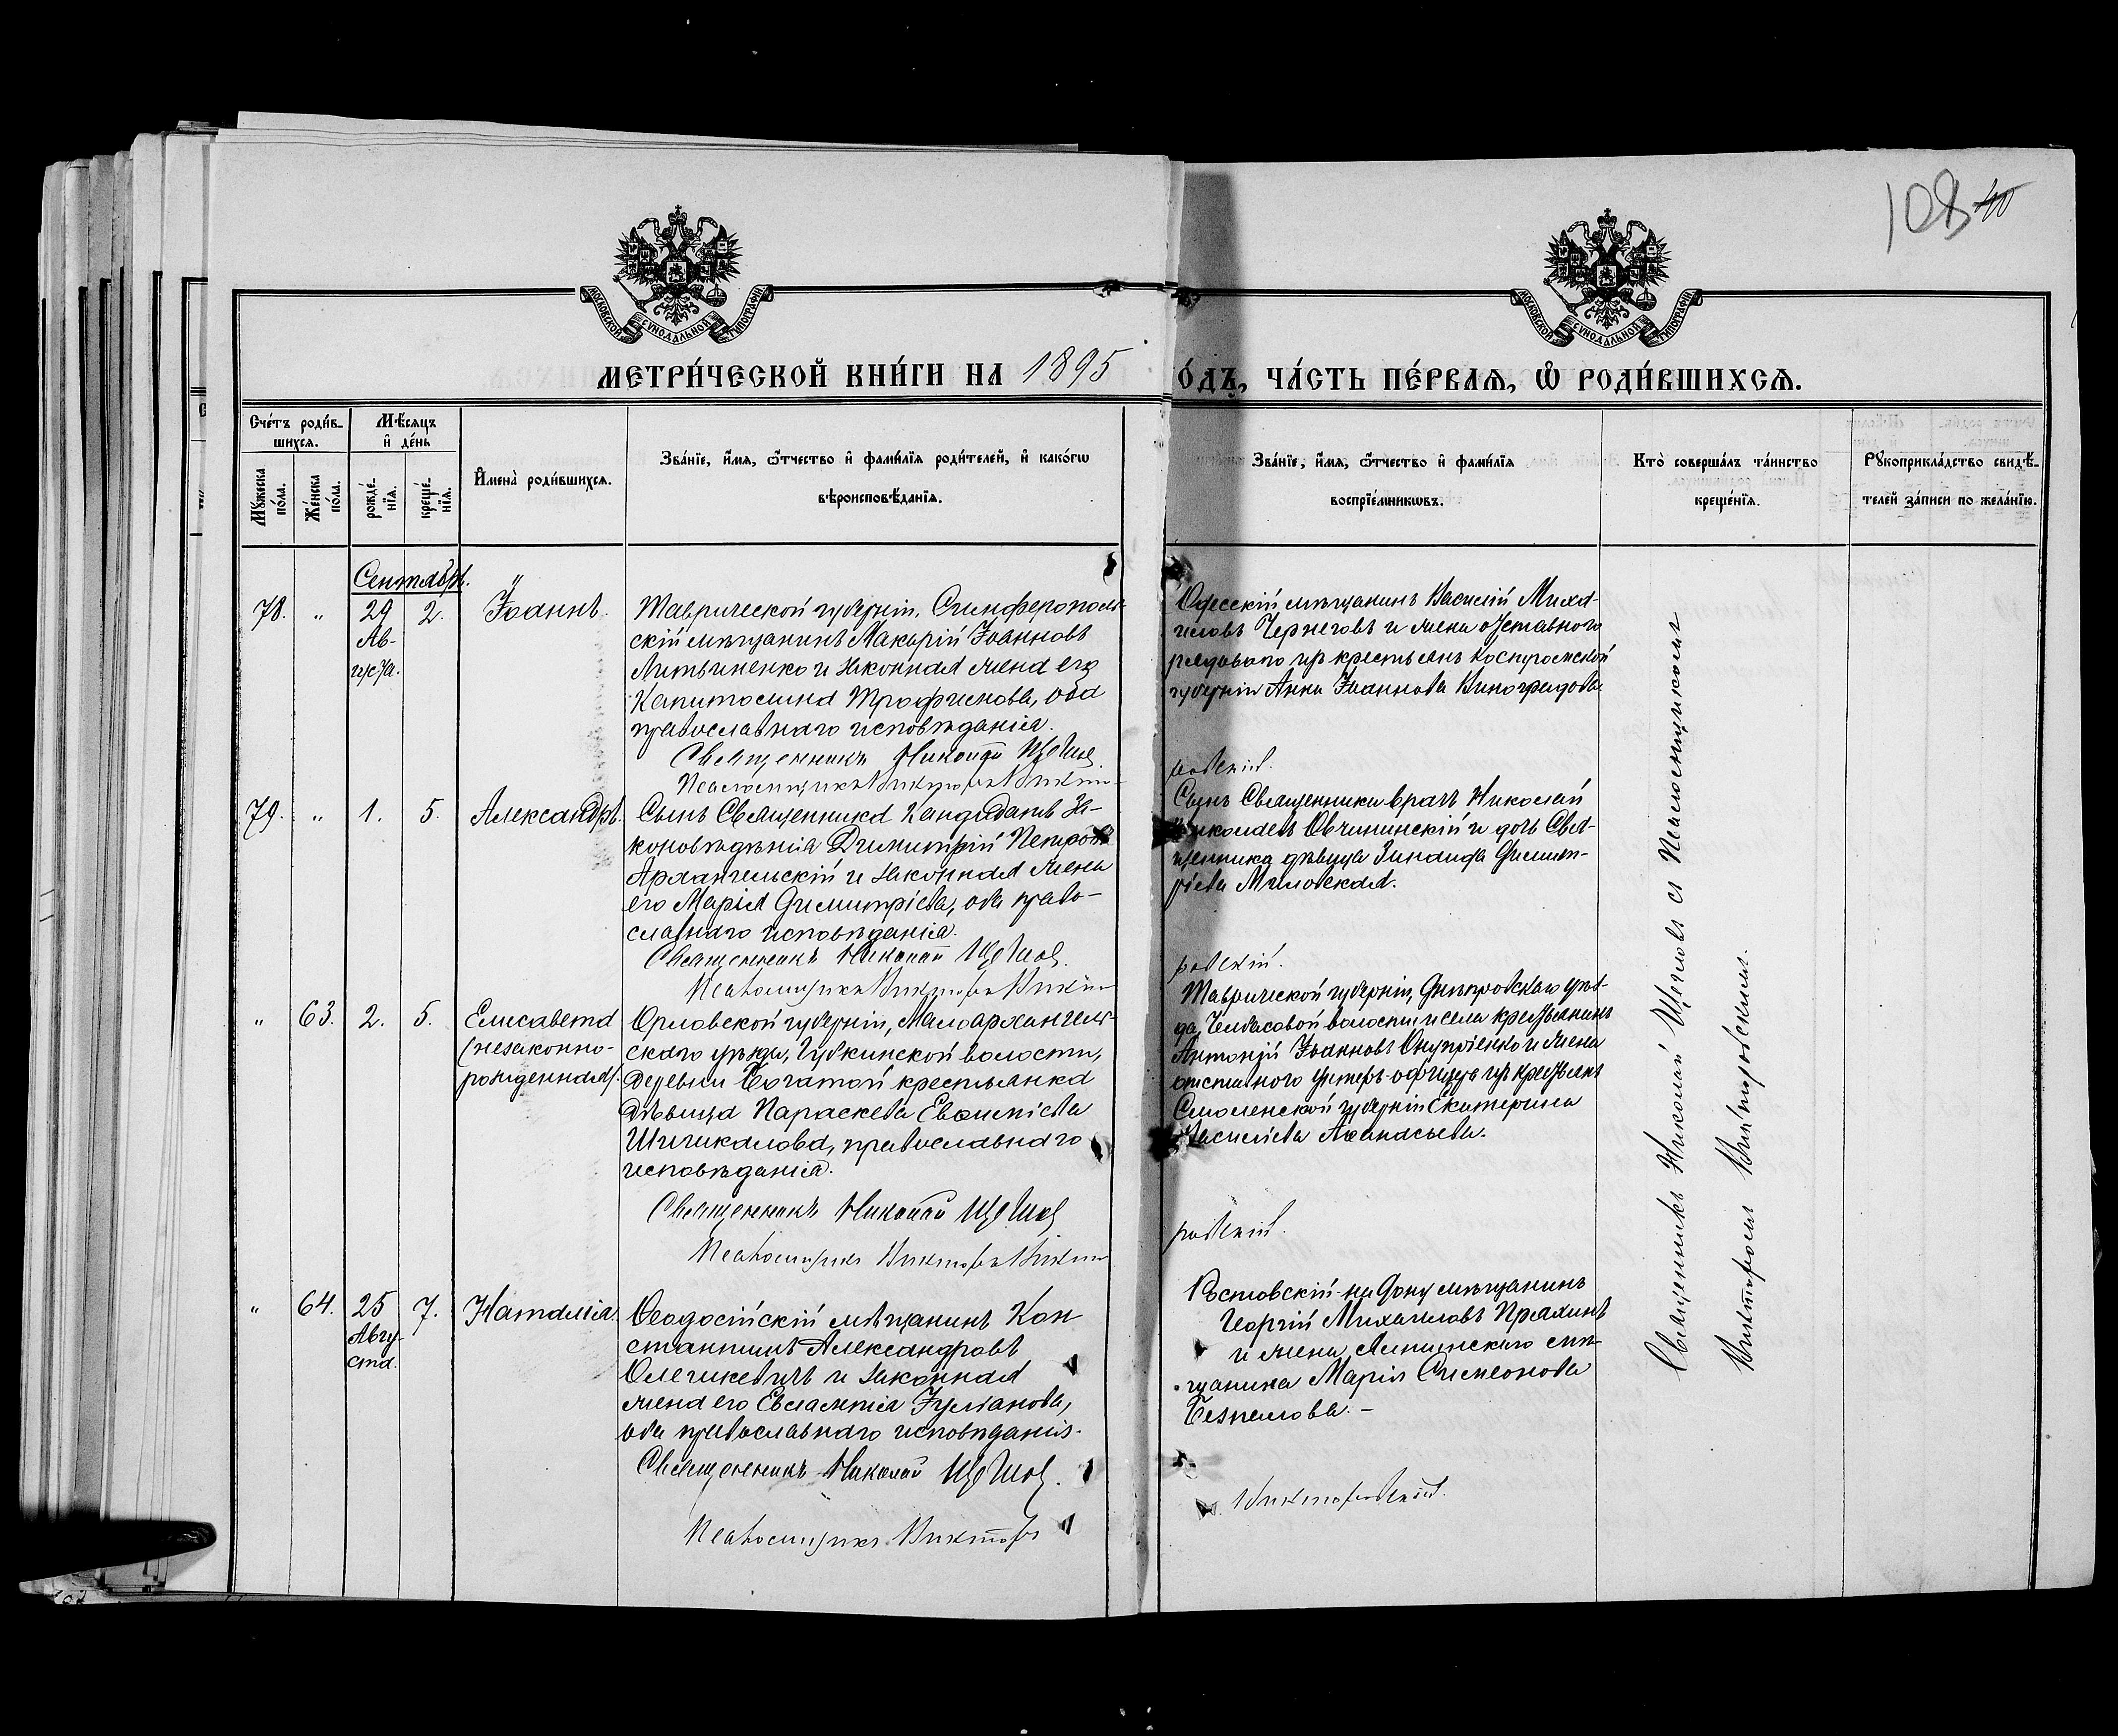 108 40
МОСКОВСКОЙ СѴНОДАЛЬНОЙ ТИПОГРАФІИ
МОСКОВСКОЙ СѴНОДАЛЬНОЙ ТИПОГРАФІИ
МЕТРИ́ЧЕСКОЙ КНИ́ГИ НА 1895
О́ДЪ, ЧА́СТЬ ПЕ́РВАѦ, Ѡ҆ РОДИ́ВШИХСѦ.
Сче́тъ роди́в-
шихсѧ.
Мѣ́сѧцъ
и҆ де́нь
Мꙋ́жеска
по́ла.
Же́нска
по́ла.
рожде́-
нїѧ.
креще́-
нїѧ.
И҆мена̀ роди́вшихсѧ.
Зва́нїе, и҆́мѧ, ѻ҆́тчество и҆ фами́лїѧ роди́телей, и҆ како́гѡ
вѣроисповѣ́данїѧ.
Зва́нїе, и҆́мѧ, ѻ҆́тчество и҆ фами́лїѧ
воспрїе́мникѡвъ.
Кто̀ соверша́лъ та́инство
креще́нїѧ.
Рꙋкоприкла́дство свидѣ́-
телей за́писи по жела́нїю.
Сентябрь.
78. " 29 2. Іоаннъ.
Ав-
густа.
Таврической губерніи, Симферополь-
скій мѣщанинъ Макарій Іоанновъ
Литвиненко и законная жена его
Капитолина Трофимова, оба
православнаго исповѣданія.
Священникъ Николай Щегловъ
Псаломщикъ Викторъ Викто-
Одесскій мѣщанинъ Василій Миха-
иловъ Черноговъ и жена отставного
рядового изъ крестьянъ Костромской
губерніи Анна Іоаннова Виноградова
ровскій.
79. " 1. 5. Александръ.
Сынъ Священника Кандидатъ За-
коновѣдѣнія Димитрій Петровъ
Архангельскій и законная жена
его Марія Димитріева, оба право-
славнаго исповѣданія.
Священникъ Николай Щегловъ.
Псаломщикъ Викторъ Викто-
Сынъ Священника врачъ Николай
Николаевъ Овчининскій и дочь Свя-
щенника дѣвица Зинаида Димит-
ріева Миловская.
ровскій.
" 63. 2. 5. Елисавета
(незаконно-
рожденная).
Орловской губерніи, Малоархангель-
скаго уѣзда, Губкинской волости,
деревни Богатой крестьянка
дѣвица Параскева Евѳиміева
Шичкалова, православнаго
исповѣданія.
Священникъ Николай Щегловъ
Псаломщикъ Викторъ Викто-
Таврической губерніи, Днѣпровскаго уѣз-
да, Челбасовой волости и села крестьянинъ
Антоній Іоанновъ Онуприенко и жена
отставного унтеръ-офицера изъ крестьянъ
Смоленской губерніи Екатерина
Васильева Аѳанасьева.
ровскій.
" 64. 25 7. Наталія.
Авгу-
ста.
Ѳеодосійскій мѣщанинъ Кон
стантинъ Александровъ
Олешкевичъ и законная
жена его Евлампія Іуліанова,
оба православнаго исповѣданія.
Священникъ Николай Щегловъ.
Псаломщикъ Викторъ
Ростовскій на Дону мѣщанинъ
Георгій Михаиловъ Пряхинъ
и жена мѣ-
щанина Марія Симеонова
Безпалова. –
Викторовскій.
Священникъ Николай Щегловъ съ Псаломщикомъ
Викторомъ Викторовскимъ.